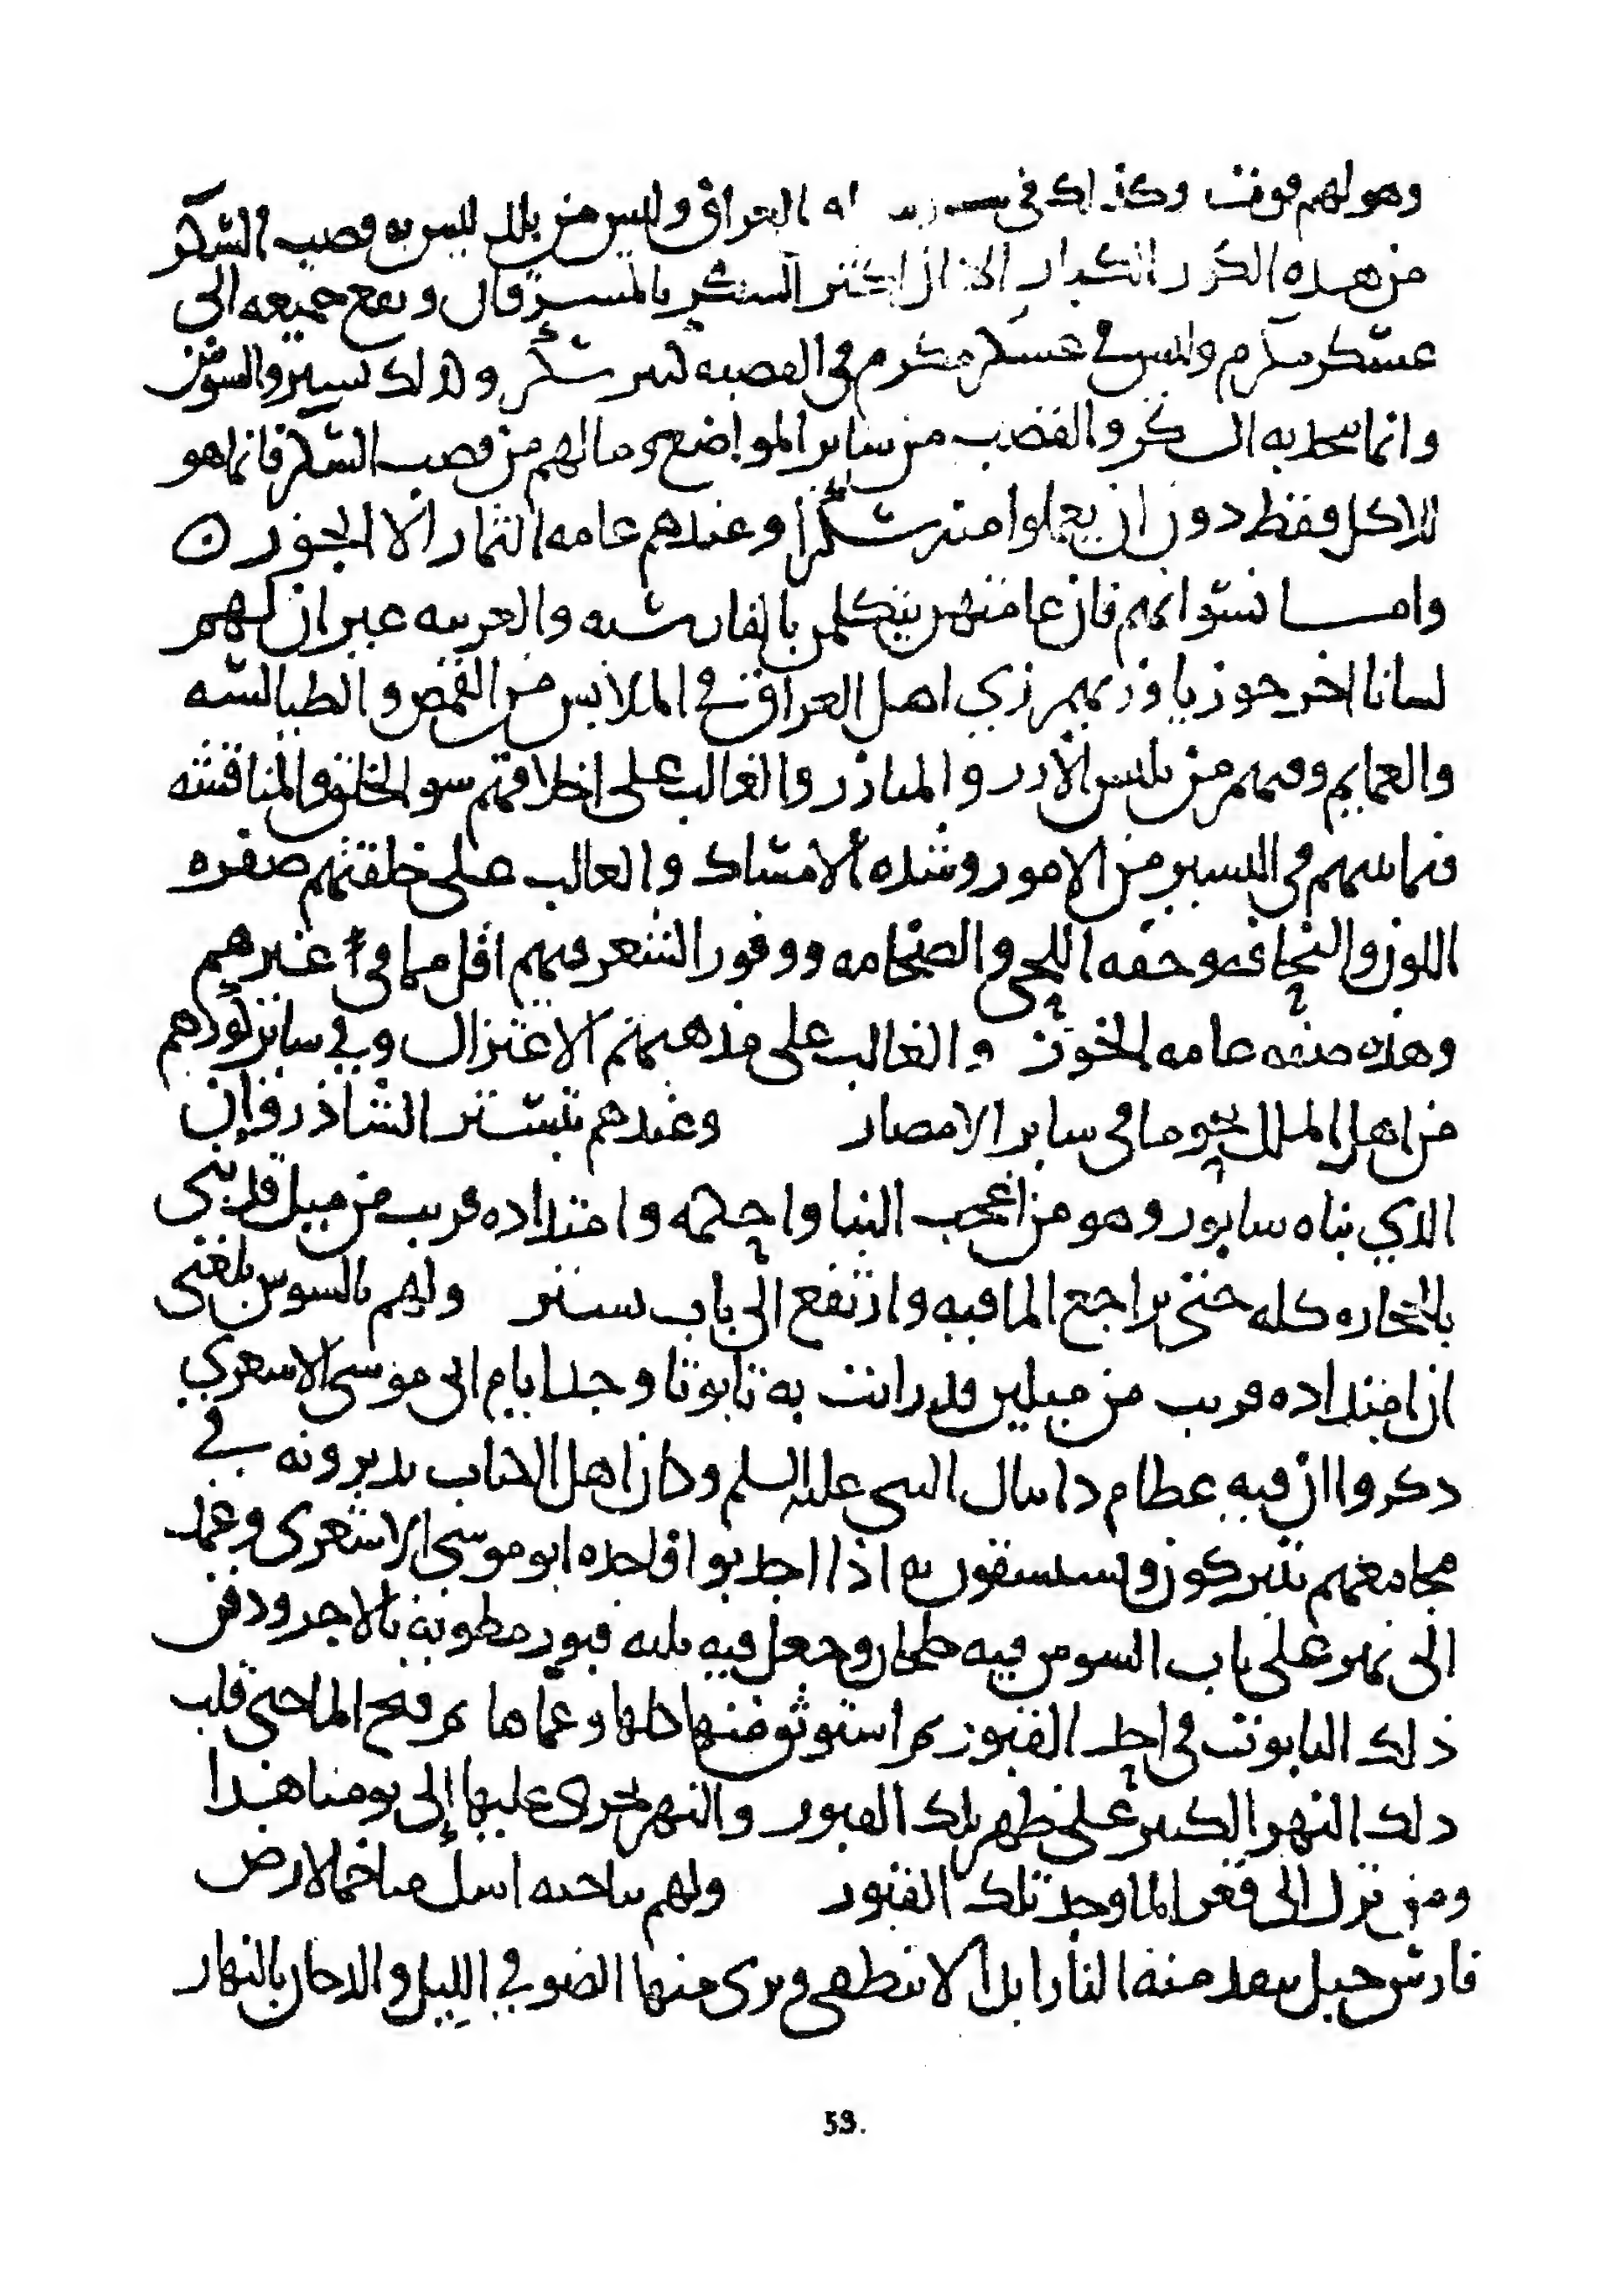 وهو لهم قوت وكذلك في العراق وليس من بلد ليس به قصب السكر
من هذه الكور الكبار الا ان اكثر السكر بالمسرقان ويقع جميعه الى
عسكر مكرم وليس في عسكر مكرم في القصبه كبير سكر وكذلك تستر والسوس
وانما يتخذ به السكر والقصب من ساير المواضع وما لهم من قصب السكر فانما هو
للاكل فقط دون ان يعملوا منه سكرا وعندهم عامه الثمار الا الجوز
وامــا لسانهم فان عامتهم يتكلمون بالفارسيه والعربيه غير ان لهم
لسانا اخر خوزيا وزيهم زي اهل العراق في الملابس من القمص والطيالسه
والعمايم وفيهم من يلبس الازر والميازر والغالب على اخلاقهم سو الخلق والمنافسه
فيما بينهم في اليسير من الامور وشده الامساك والغالب على خلقتهم صفره
اللون والنحافه وخفه اللحى والضخامه ووفور الشعر فيهم اقل مما في غيرهم
وهذه صفه عامه الخوز والغالب على مذهبهم الاعتزال وفي ساير كورهم
من اهل الملل نحو ما في ساير الامصار وعندهم بتستر الشاذروان
الذي بناه سابور وهو من اعجب البنا واحكمه وامتداده قريب من ميل قد بني
بالحجاره كله حتى يراجع الما فيه وارتفع الى باب تستر ولهم بالسوس بلغني
ان امتداده قريب من ميلين قد رايت به تابوتا وجد ايام ابى موسى الاشعري
ذكروا ان فيه عظام دانيال النبي عليه السلم وكان اهل الكتاب يديرونه في
مجامعهم يتبركون ويستسقون به اذا اجدبوا فاخذه ابو موسى الاشعرى وعمد
الى نهر على باب السوس فيه خلجان وجعل فيه ثلثه قبور مطويه بالاجر ودفن
ذلك التابوت في احد القبور ثم استوثق منها كلها وعماها ثم فتح الما حتى قلب
ذلك النهر الكبير على ظهر تلك القبور والنهر يجرى عليها إلى يومنا هذا
ومن نزل الى قعر الما وجد تلك القبور ولهم بناحيه اسك متاخما لارض
فارس جبل يتقد منه النار ابدا لا ينطفى ويرى منها الضو في الليل والدخان بالنهار
53.